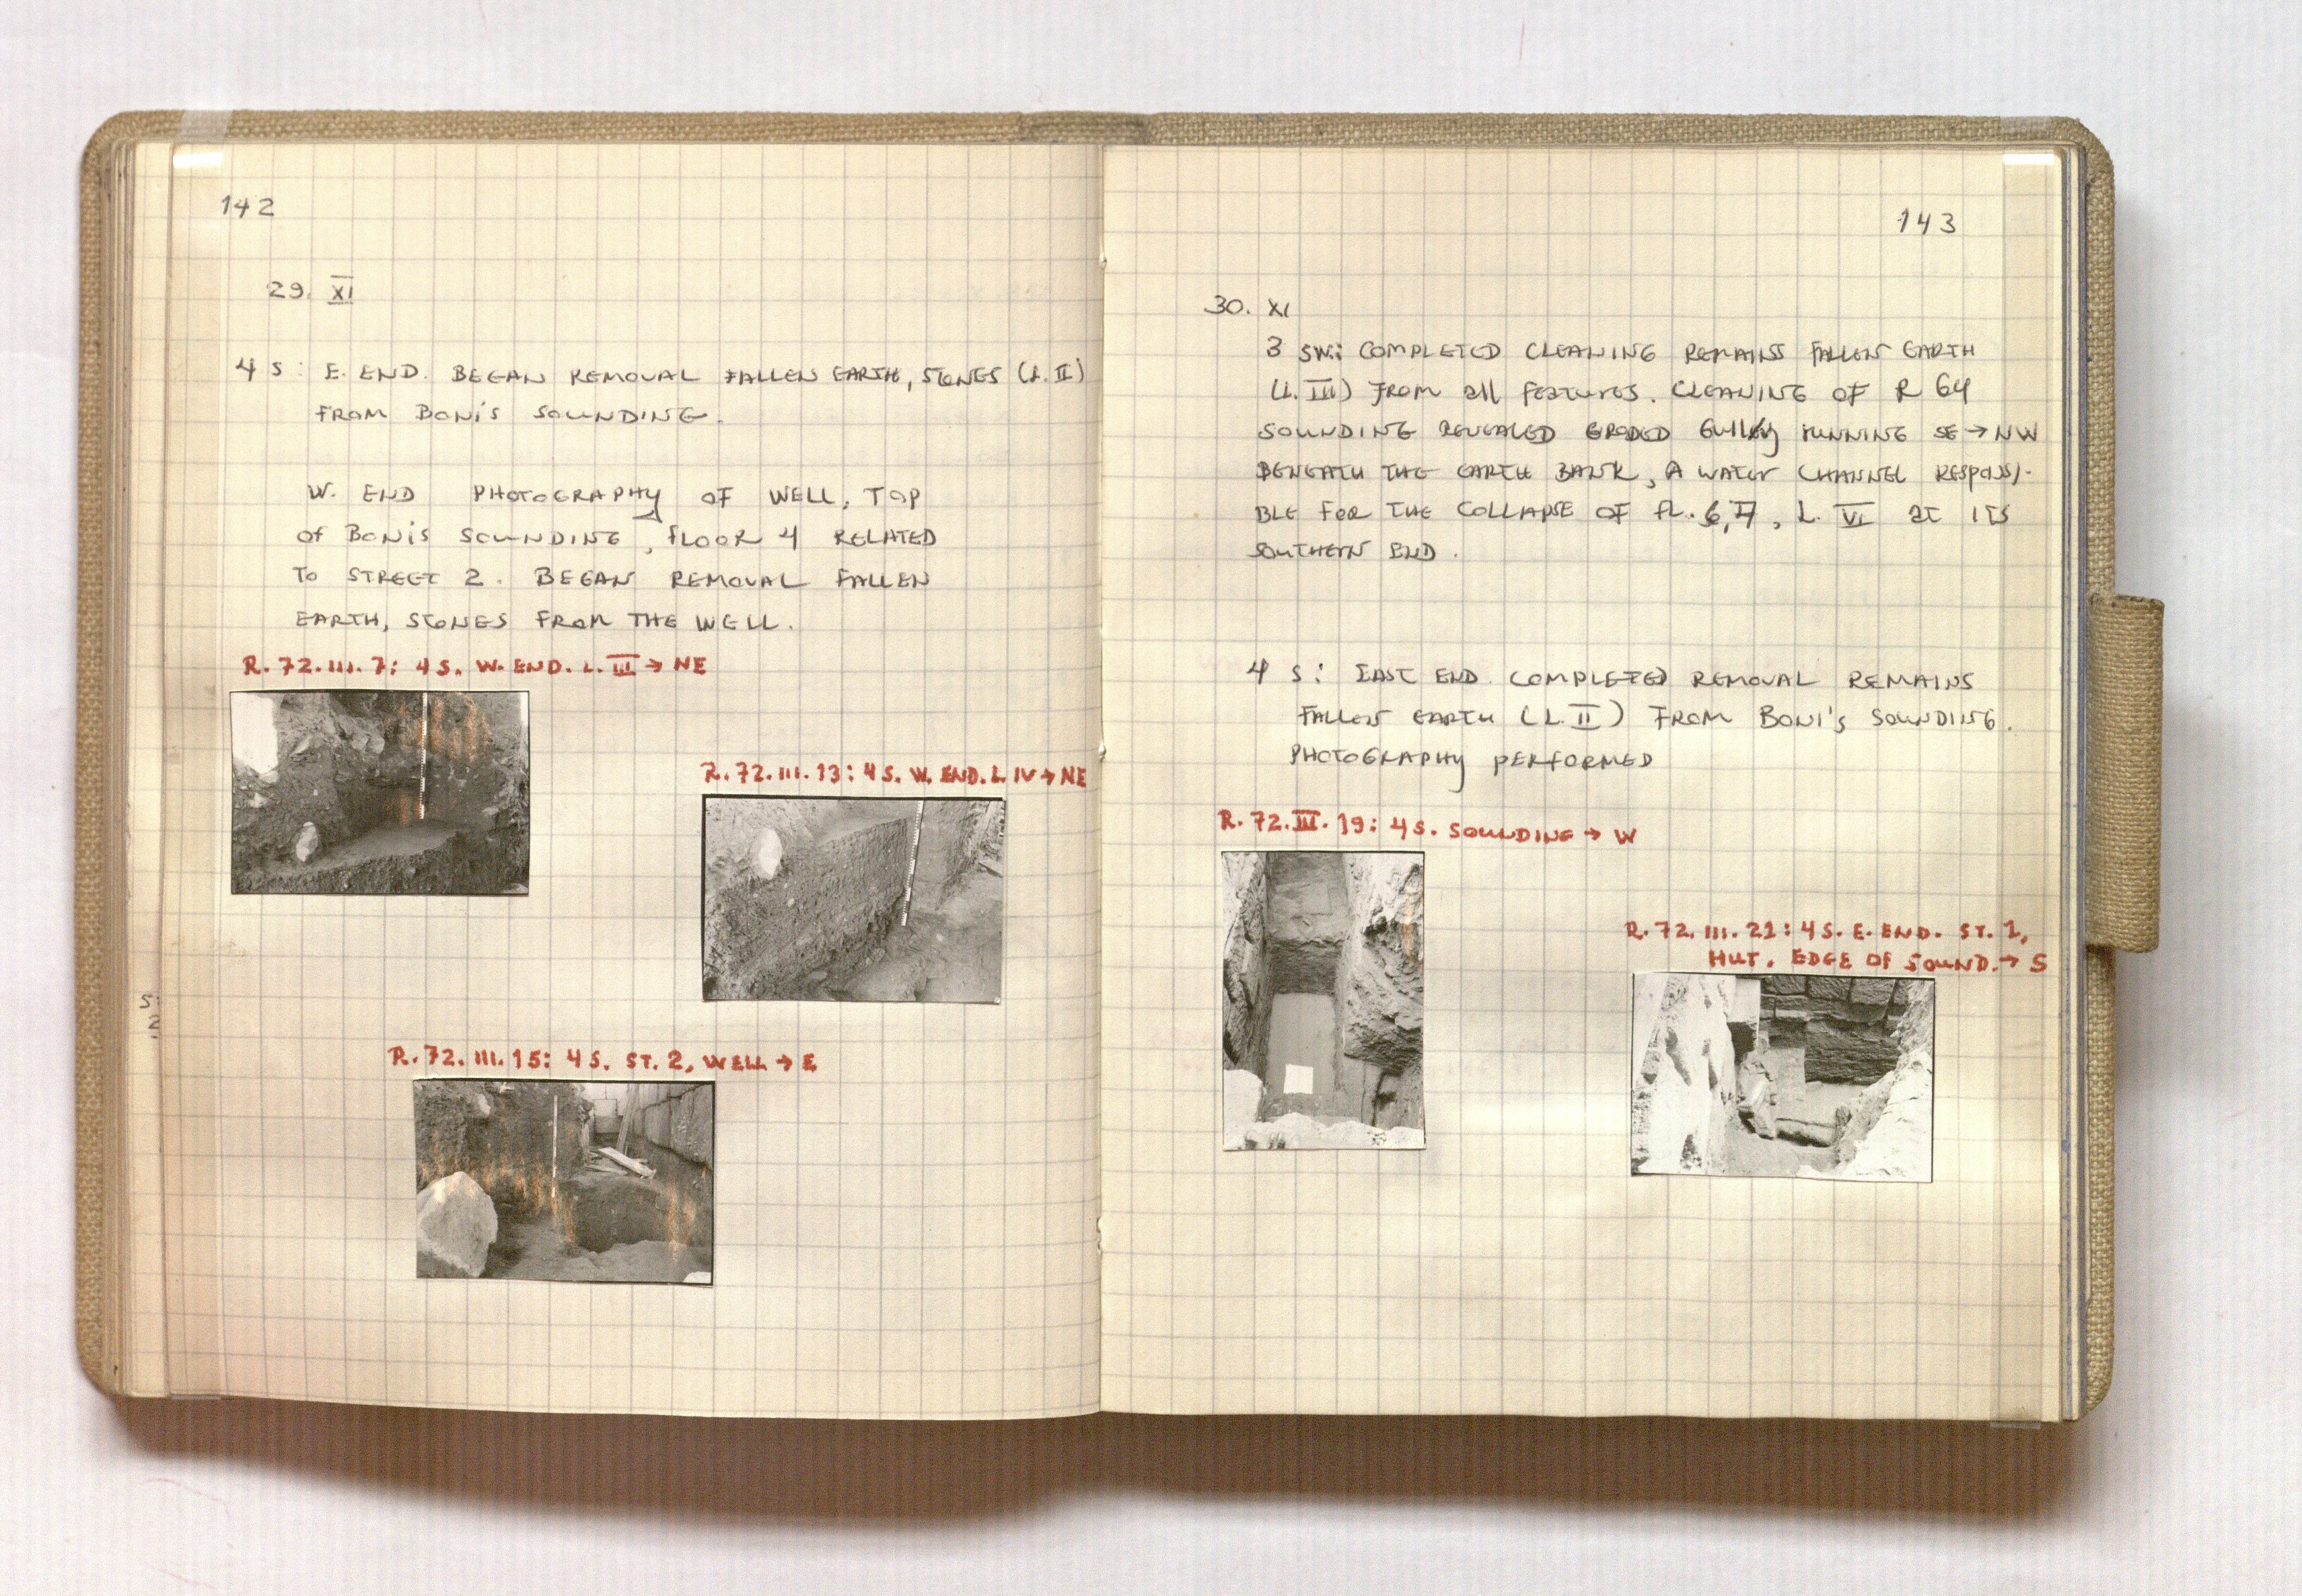 142
29. XI
4 S: E. END. BEGAN REMOVAL FALLEN EARTH, STONES (L. II)
FROM BONI'S SOUNDING.
W. END PHOTOGRAPHY OF WELL, TOP
OF BONI'S SOUNDING, FLOOR 4 RELATED
TO STREET 2. BEGAN REMOVAL FALLEN
EARTH, STONES FROM THE WELL.
R. 72. III. 7: 4 S. W. END. L. III → NE
R. 72. III. 13: 4 S. W. END. L. IV → NE
R. 72. III. 15: 4 S. ST. 2, WELL → E
S:
2
143
30. XI
3 SW: COMPLETED CLEANING REMAINS FALLEN EARTH
(L. III) FROM all FEATURES. CLEANING OF R 64
SOUNDING REVEALED ERODED GULLEY RUNNING SE → NW
BENEATH THE EARTH BANK, A WATER CHANNEL RESPONSI-
BLE FOR THE COLLAPSE OF FL. 6, 7, L. VI AT ITS
SOUTHERN END.
4 S: EAST END COMPLETED REMOVAL REMAINS
FALLEN EARTH (L. II) FROM BONI'S SOUNDING.
PHOTOGRAPHY PERFORMED
R. 72. III. 19: 4 S. SOUNDING → W
R. 72. III. 21: 4 S. E. END. ST. 1,
HUT. EDGE OF SOUND. → S